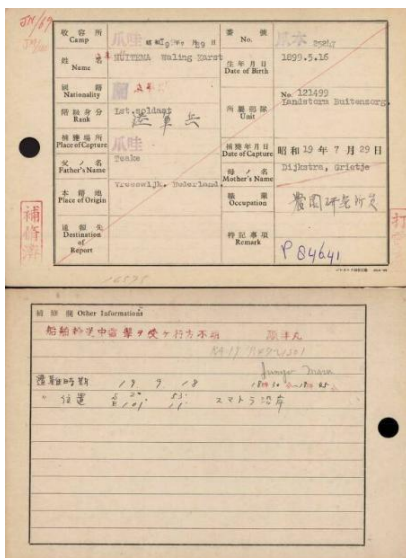 收容所
Camp
爪哇
番號
No.
姓名
Name
HUITEMA Waling Karst
生年月日
Date of Birth
1899.5.16
國籍
Nationality
蘭
No. 121499
所屬部隊
Unit
Landstorm Buitenzorg.
階級身分
Rank
Lst.soldaat
陸軍兵
捕獲場所
Place of Capture
爪哇
捕獲年月日
Date of Capture
昭和 19 年 7 月 29 日
父ノ名
Father's Name
Teake
母ノ名
Mother's Name
Dijkstra, Grietje
本籍地
Place of Origin
Vreeswijk, Nederland.
職業
Occupation
通報先
Destination of Report
特記事項
Remark
P 84641
補修濟
其ノ他 Other Informations
船舶輸送中雷撃ヲ受ケ行方不明
順洋丸
Junyo Maru
遭難時期 19. 9. 18
位置
スマトラ沿岸